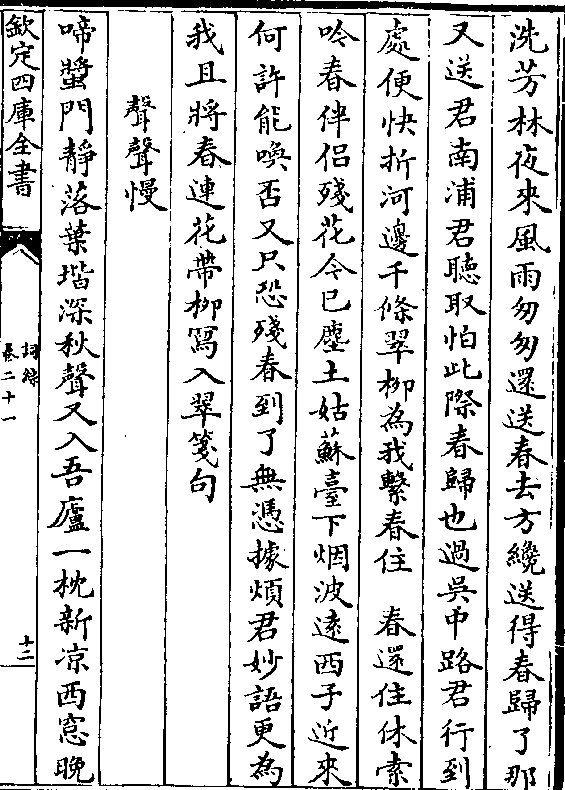 洗芳林夜來風雨匆匆還送春去方纔送得春歸了那
又送君南浦君聽取怕此際春歸也過吳中路君行到
處便快折河邊千條翠柳為我繫春住　春還住休索
吟春伴侣殘花今已塵土姑蘇臺下烟波逺西子近來
何許能喚否又只恐殘春到了無憑據煩君妙語更為
我且將春連花帶柳寫入翠箋句
聲聲慢
啼螿門靜落葉堦深秋聲又入吾廬一枕新凉西窓晚
欽定四庫全書
詞綜
卷二十一
十二